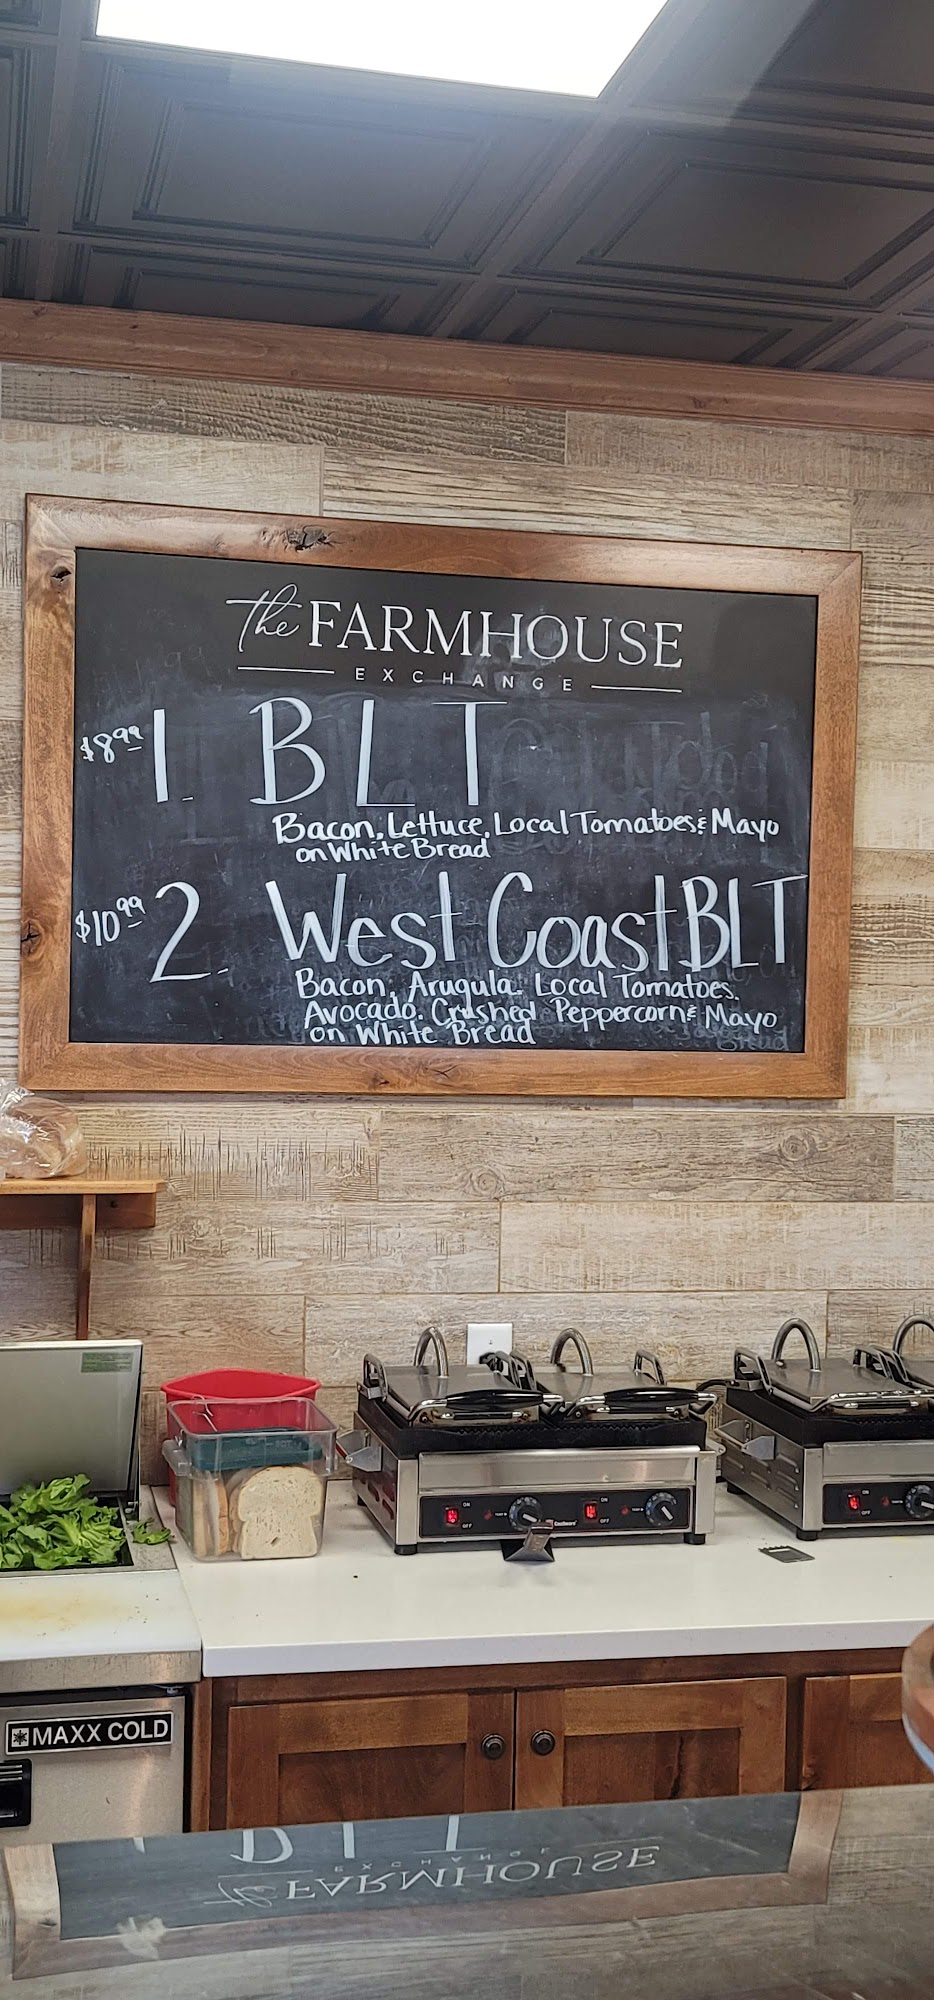 the FARMHOUSE
EXCHANGE
$8.99 1. BLT
Bacon, Lettuce, Local Tomatoes, & Mayo
on White Bread
$10.99 2. West Coast BLT
Bacon, Arugula, Local Tomatoes,
Avocado, Crushed Peppercorn & Mayo
on White Bread
ON
OFF
ON
OFF
MAXX COLD
the FARMHOUSE
EXCHANGE
BLT